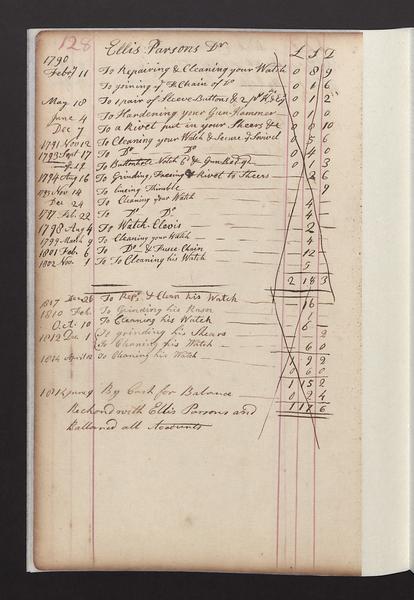 128
Ellis Parsons Dr
£ S D
1790
Feby 11 To Repairing & Cleaning your Watch 0 8 9
To joining ye Chain of Do 0 1 6
May 18 To 1 pair of Sleeve Buttons & 2 0 1 2
June 4 To Hardening your Gun Hammer 0 1 0
Dec 7 To a Rivet put in your Sheers &c 0 0 10
1791 Novr 12 To Cleaning your Watch & Secure ye Swivel
1793 Sept 17 To Do Do 0 4
To Notch & Gun 0 1 3
1794 Aug 16 To Grinding, & Rivet to Sheers 2 6
1795 Nov 14 To Thimble 9
Dec 24 To Cleaning your Watch 4
Feb. 22 To Do Do 4
1798 Aug 4 To Watch Clevis 2
1799 March 9 To Cleaning your Watch 4
1801 Feb. 6 To Do & Fusee Chain 12
1802 Nov. 1 To To Cleaning his Watch 5
2 18 3
Dec 26 To Repr & Clean his Watch 16
1810 Feb. To Grinding his Rasor 1
Oct. 10 To Cleaning his Watch 6
1812 Dec 1 To grinding his Shears
To Cleaning his Watch 6 0
1814 April To Cleaning his Watch 9 2
0 6 0
1 15 2
By Cash for Ballance 0 2 4
Reckond with Ellis Parsons and 1 17 6
Ballanced all Accounts